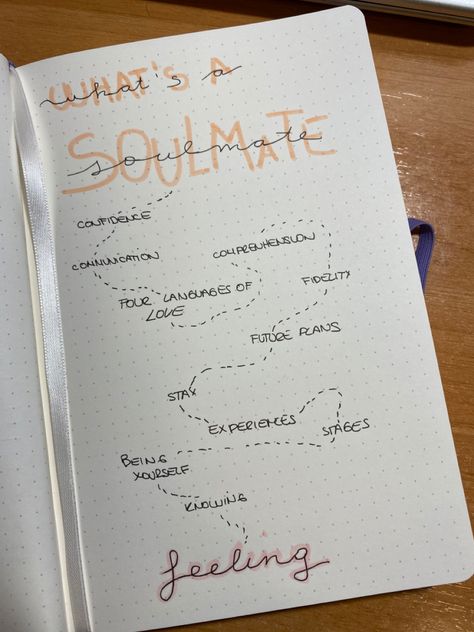 WHAT'S A
what's a
SOULMATE
soulmate
CONFIDENCE
COMMUNICATION
FOUR LANGUAGES OF
LOVE
COMPREHENSION
FIDELITY
FUTURE PLANS
STAY
EXPERIENCES
STAGES
BEING
YOURSELF
KNOWING
feeling